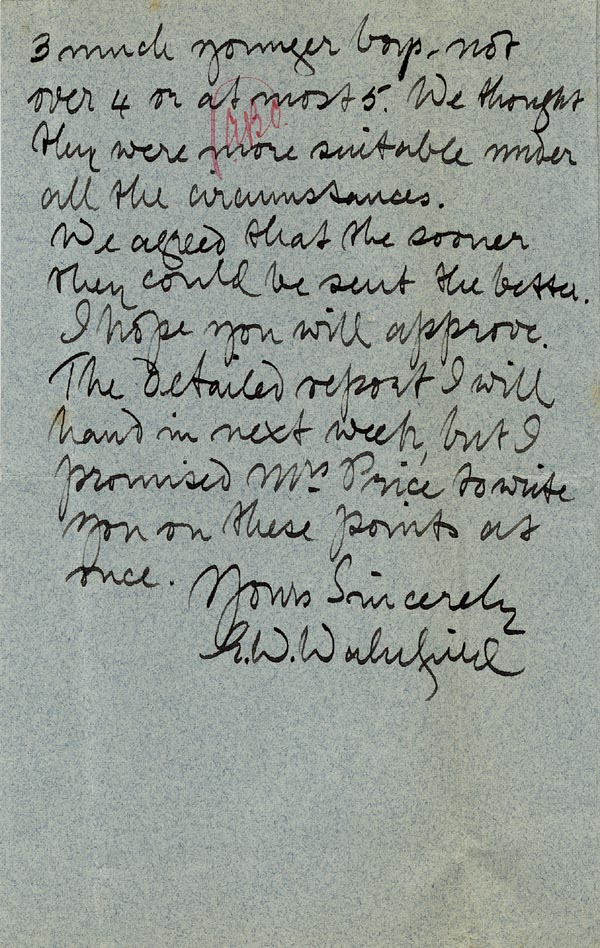 3 much younger boys - not
over 4 or at most 5. We thought
they were more suitable under
all the circumstances.
We agreed that the sooner
they could be sent the better.
I hope you will approve.
The detailed report I will
hand in next week, but I
promised Mrs Price to write
you on these points at
once. Yours Sincerely
W. Wakefield